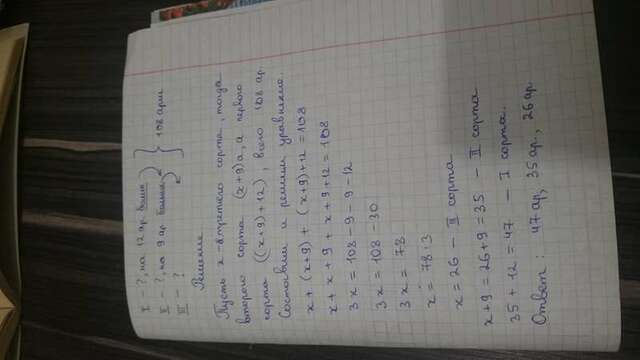 I - ?, на 12 ар. больш.
II - ?, на 9 ар. больше
III - ?
108 арии
Решение
Пусть x - третьего сорта, тогда
второго сорта (x+9) а, а первого
сорта ((x+9)+12), всего 108 ар.
Составим и решим уравнение.
x + (x+9) + (x+9)+12 = 108
x + x + 9 + x + 9 + 12 = 108
3x = 108 - 9 - 9 - 12
3x = 108 - 30
3x = 78
x = 78:3
x = 26 - III сорта
x+9 = 26+9 = 35 - II сорта
35 + 12 = 47 - I сорта.
Ответ: 47 ар, 35 ар., 26 ар.